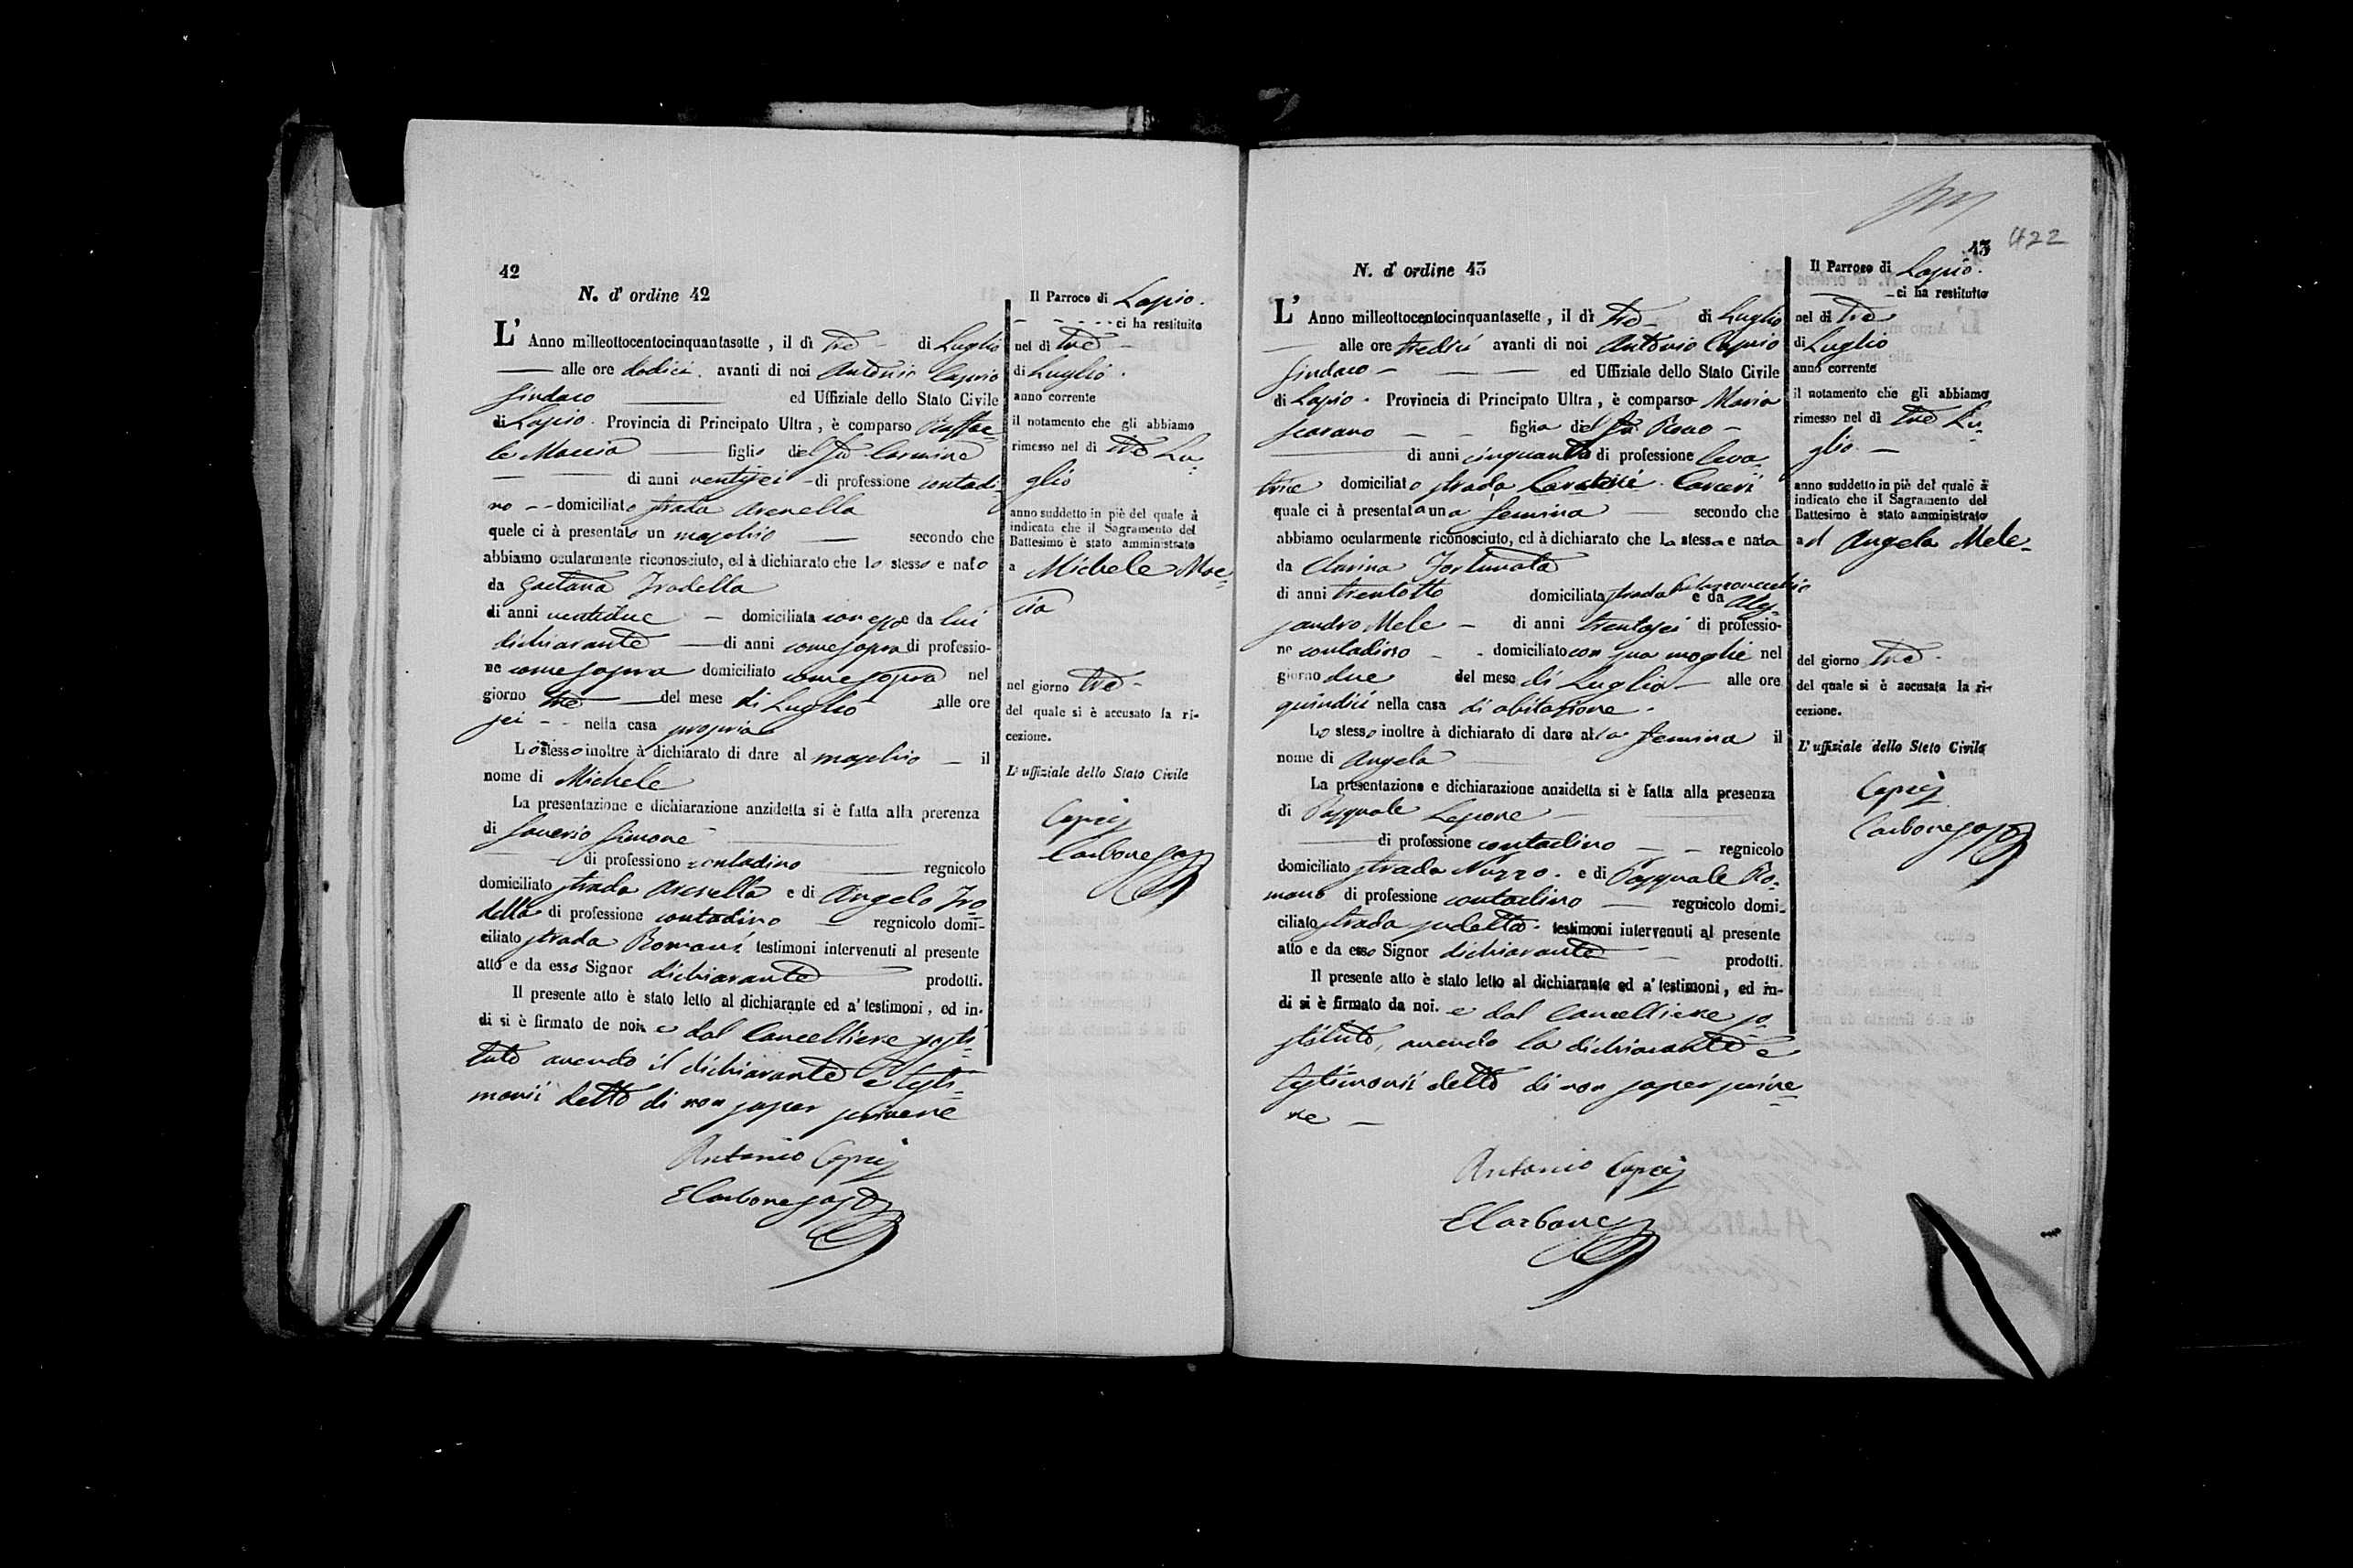 42
N. d' ordine 42
L' Anno milleottocentocinquantasette , il dì tre di Luglio
alle ore dodici avanti di noi Antonio Caprio
Sindaco ed Uffiziale dello Stato Civile
di Lapio. Provincia di Principato Ultra , è comparso Raffae=
le Maccia figlio del fu Carmine
di anni ventisei di professione contadi=
no domiciliato strada Arenella
quele ci à presentato un maschio secondo che
abbiamo ocularmente riconosciuto, ed à dichiarato che lo stesso e nato
da Gaetana Trodella
di anni ventidue domiciliata con esso e da lui
dichiarante di anni come sopra di professio-
ne come sopra domiciliato come sopra nel
giorno tre del mese di Luglio alle ore
sei nella casa propria
Lo stesso inoltre à dichiarato di dare al maschio il
nome di Michele
La presentazione e dichiarazione anzidetta si è fatta alla prerenza
di Saverio Simone
di professiono contadino regnicolo
domiciliato strada Arenella e di Angelo Tro=
della di professione contadino regnicolo domi-
ciliato strada Romani testimoni intervenuti al presente
atto e da esso Signor dichiarante prodotti.
Il presente atto è stato letto al dichiarante ed a' testimoni, ed in-
di si è firmato de noi. e dal Cancelliere sosti=
tuto avendo il dichiarante e testi=
monii detto di non saper scrivere
Antonio Caprio
E Carbone sosto
Il Parroco di Lapio.
ci ha restituito
nel dì tre
di Luglio.
anno corrente
il notamento che gli abbiamo
rimesso nel dì tre Lu=
glio
anno suddetto in piè del quale à
indicato che il Sagramento del
Battesimo è stato amministrato
a Michele Mac=
cia
nel giorno tre
del quale si è accusato la ri-
cezione.
L' uffiziale dello Stato Civile
Caprio
Carbone sosto
422
43
N. d' ordine 43
L' Anno milleottocentocinquantasette , il dì tre di Luglio
alle ore tredici avanti di noi Antonio Caprio
Sindaco ed Uffiziale dello Stato Civile
di Lapio. Provincia di Principato Ultra , è comparsa Maria
Scarano figlia del fu Rocco
di anni cinquanta di professione leva
trice domiciliato strada Carceri
quale ci à presentata una femina secondo che
abbiamo ocularmente riconosciuto, ed à dichiarato che la stessa e nata
da Clarina Fortunato
di anni trentotto domiciliata strada Palazzovecchio e da Ales=
sandro Mele di anni trentasei di professio-
ne contadino domiciliato con sua moglie nel
giorno due del mese di Luglio alle ore
quindici nella casa di abitazione.
Lo stesso inoltre à dichiarato di dare alla femina il
nome di Angela
La presentazione e dichiarazione anzidetta si è fatta alla presenza
di Pasquale Lepore
di professione contadino regnicolo
domiciliato strada Nuzzo. e di Pasquale Ro=
mano di professione contadino regnicolo domi-
ciliato strada sudetta. testimoni intervenuti al presente
atto e da esso Signor dichiarante prodotti.
Il presente atto è stato letto al dichiarante ed a' testimoni, ed in-
di si è firmato da noi. e dal Cancelliere so=
stituto, avendo la dichiarante e
testimonii detto di non saper scrive=
re
Antonio Caprio
E Carbone
Il Parroco di Lapio.
ci ha restituito
nel dì tre
di Luglio
anno corrente
il notamento che gli abbiamo
rimesso nel dì tre Lu=
glio
anno suddetto in piè del quale à
indicato che il Sagramento del
Battesimo è stato amministrato
ad Angela Mele
del giorno tre
del quale si è accusata la ri-
cezione.
L' uffiziale dello Stato Civile
Caprio
Carbone sosto